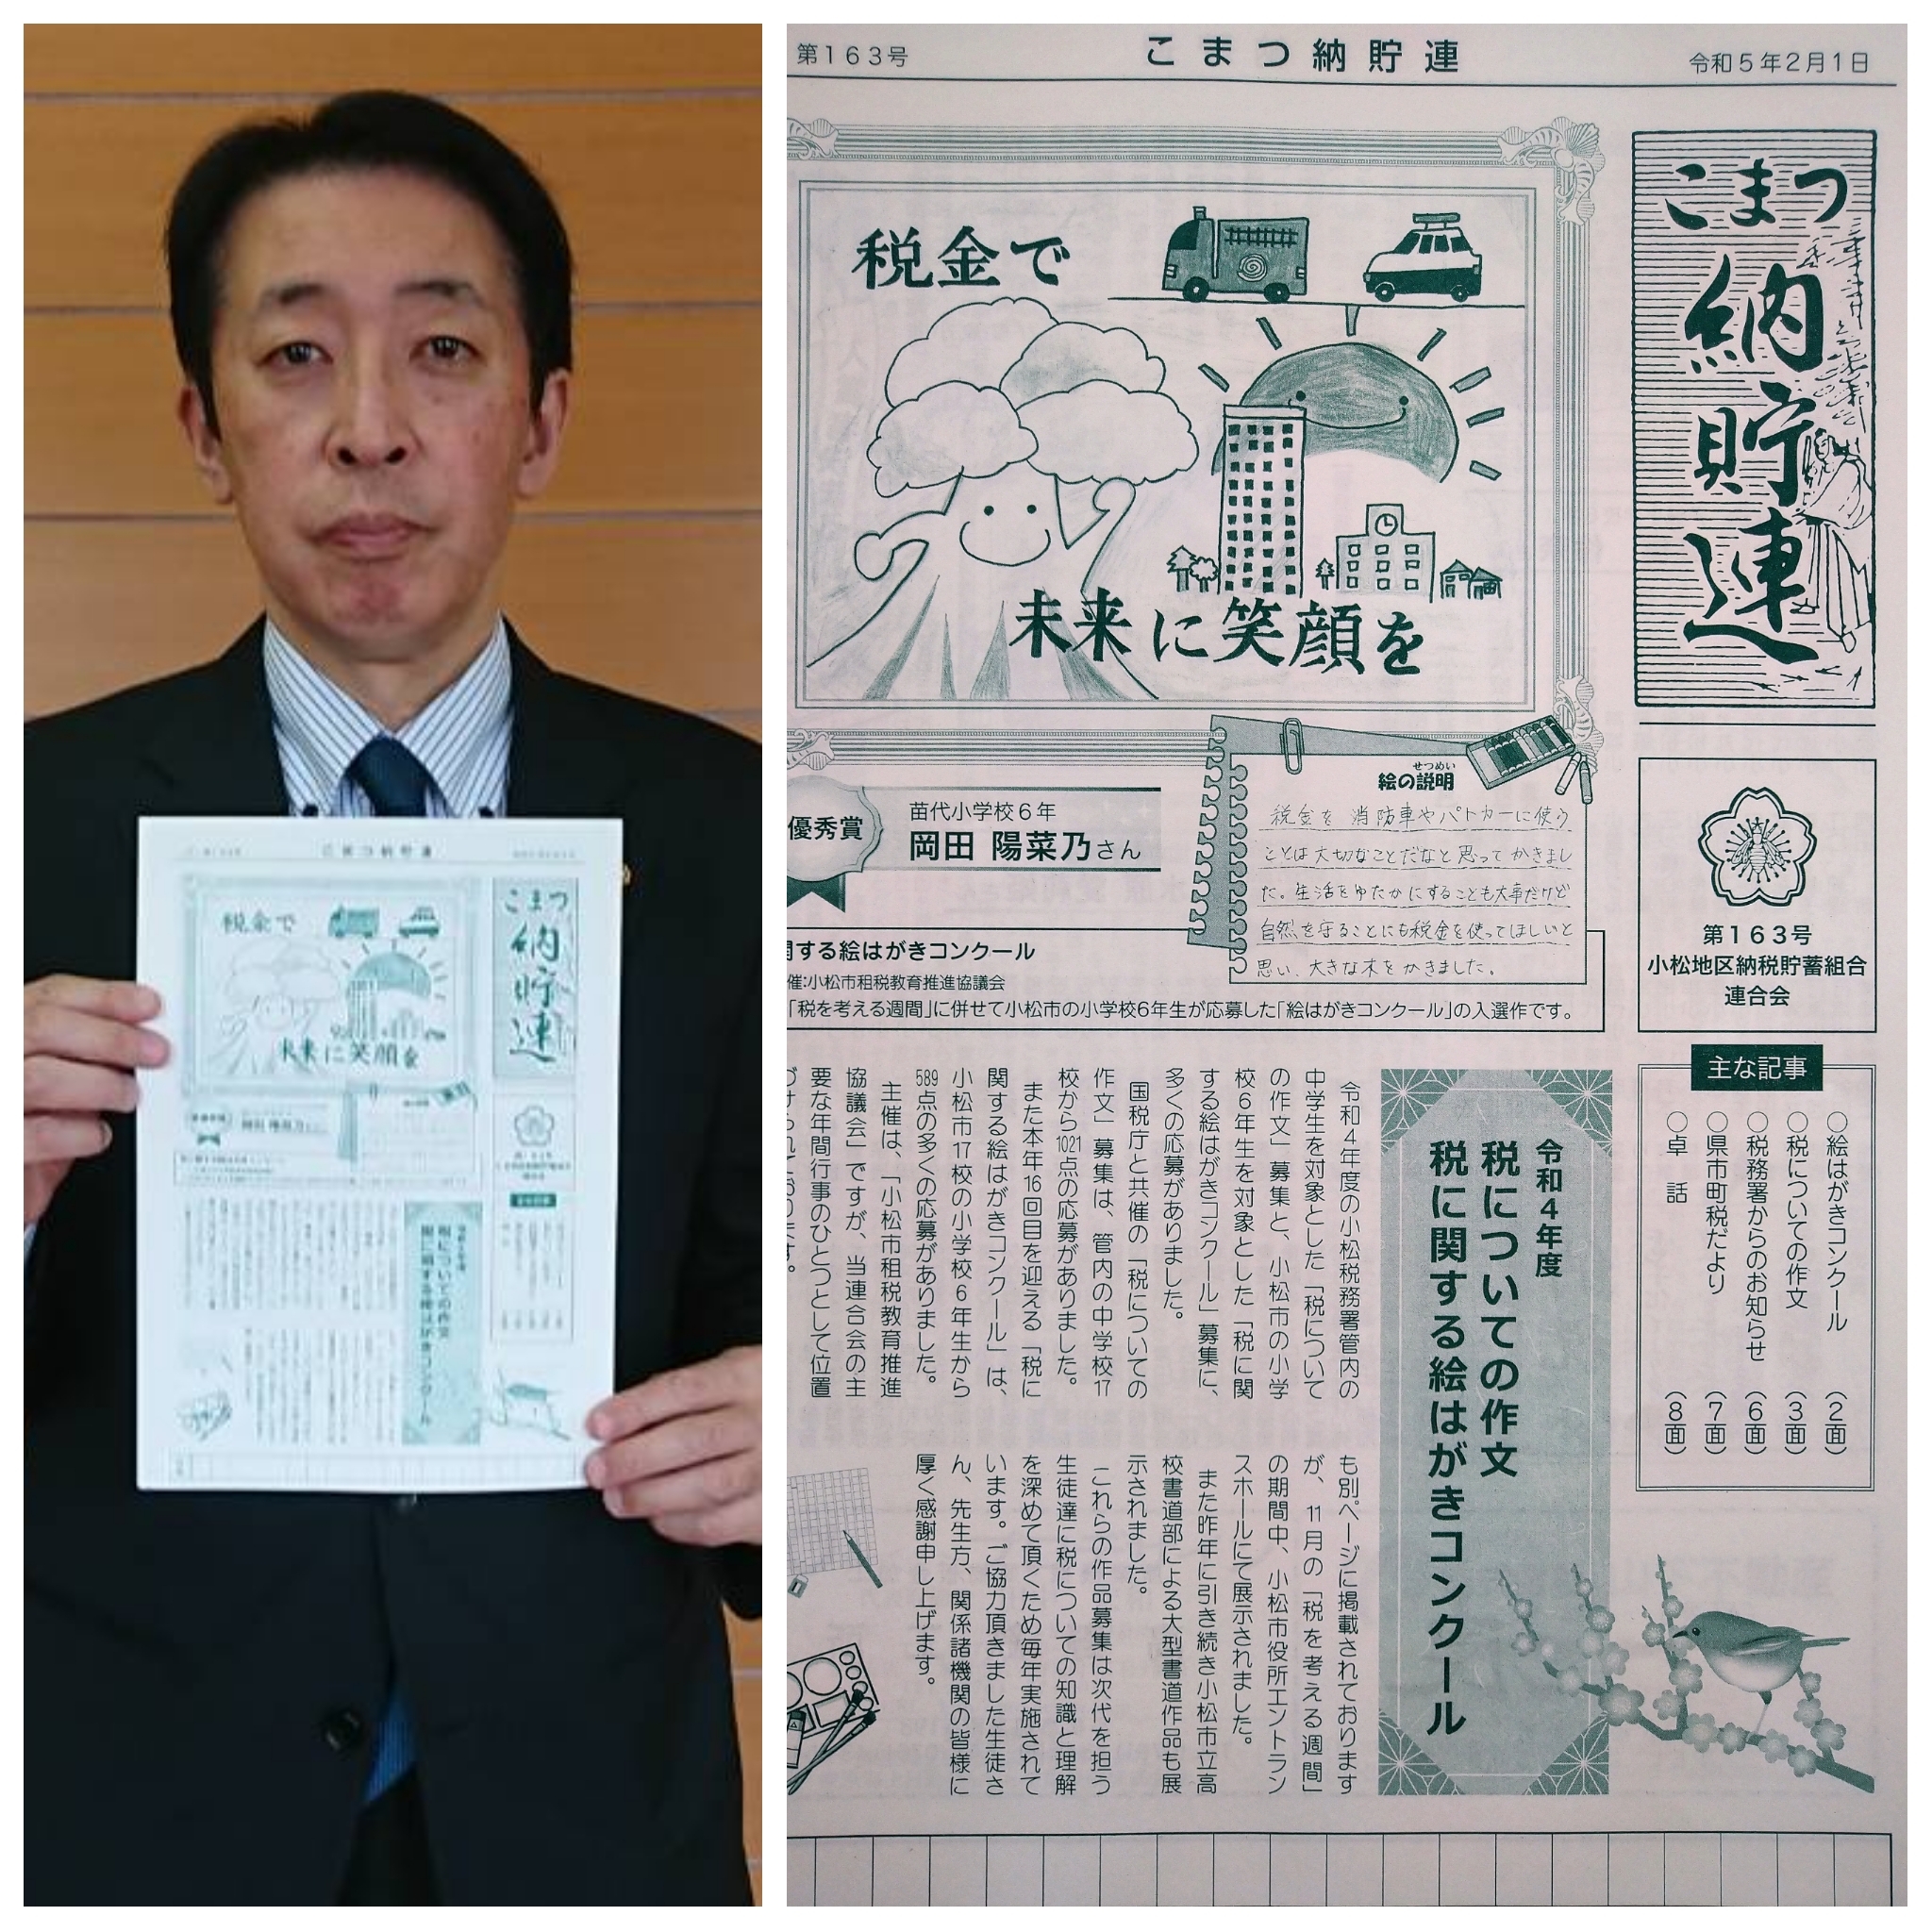 第163号
こまつ納貯連
令和5年2月1日
こまつ
納
貯
連
税金で
未来に笑顔を
優秀賞
苗代小学校6年
岡田 陽菜乃さん
せつめい
絵の説明
税金を 消防車やパトカーに使う
ことは大切なことだなと思ってかきまし
た。生活をゆたかにすることも大事だけど
自然を守ることにも税金を使ってほしいと
思い、大きな木をかきました。
関する絵はがきコンクール
催:小松市租税教育推進協議会
「税を考える週間」に併せて小松市の小学校6年生が応募した「絵はがきコンクール」の入選作です。
第163号
小松地区納税貯蓄組合
連合会
主な記事
○絵はがきコンクール (2面)
○税についての作文 (3面)
○税務署からのお知らせ (6面)
○県市町税だより (7面)
○卓 話 (8面)
令和4年度
税についての作文
税に関する絵はがきコンクール
令和4年度の小松税務署管内の
中学生を対象とした「税について
の作文」募集と、小松市の小学
校6年生を対象とした「税に関
する絵はがきコンクール」募集に、
多くの応募がありました。
国税庁と共催の「税についての
作文」募集は、管内の中学校17
校から1021点の応募がありました。
また本年16回目を迎える「税に
関する絵はがきコンクール」は、
小松市17校の小学校6年生から
589点の多くの応募がありました。
主催は、「小松市租税教育推進
協議会」ですが、当連合会の主
要な年間行事のひとつとして位置
づけられております。
も別ページに掲載されております
が、11月の「税を考える週間」
の期間中、小松市役所エントラン
スホールにて展示されました。
また昨年に引き続き小松市立高
校書道部による大型書道作品も展
示されました。
これらの作品募集は次代を担う
生徒達に税についての知識と理解
を深めて頂くため毎年実施されて
います。ご協力頂きました生徒さ
ん、先生方、関係諸機関の皆様に
厚く感謝申し上げます。
こまつ納貯連
税金で
未来に笑顔を
こまつ
納
貯
連